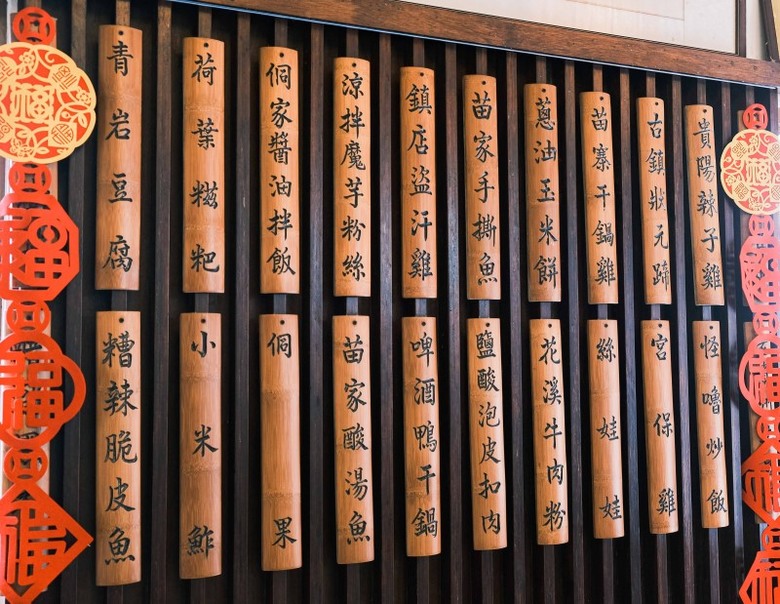 青岩豆腐
荷葉糍粑
侗家醬油拌飯
涼拌魔芋粉絲
鎮店盜汗雞
苗家手撕魚
蔥油玉米餅
苗寨干鍋雞
古鎮狀元蹄
貴陽辣子雞
糟辣脆皮魚
小米鮓
侗果
苗家酸湯魚
啤酒鴨干鍋
鹽酸泡皮扣肉
花溪牛肉粉
絲娃娃
宮保雞
怪嚕炒飯
福
福
福
福
福
福